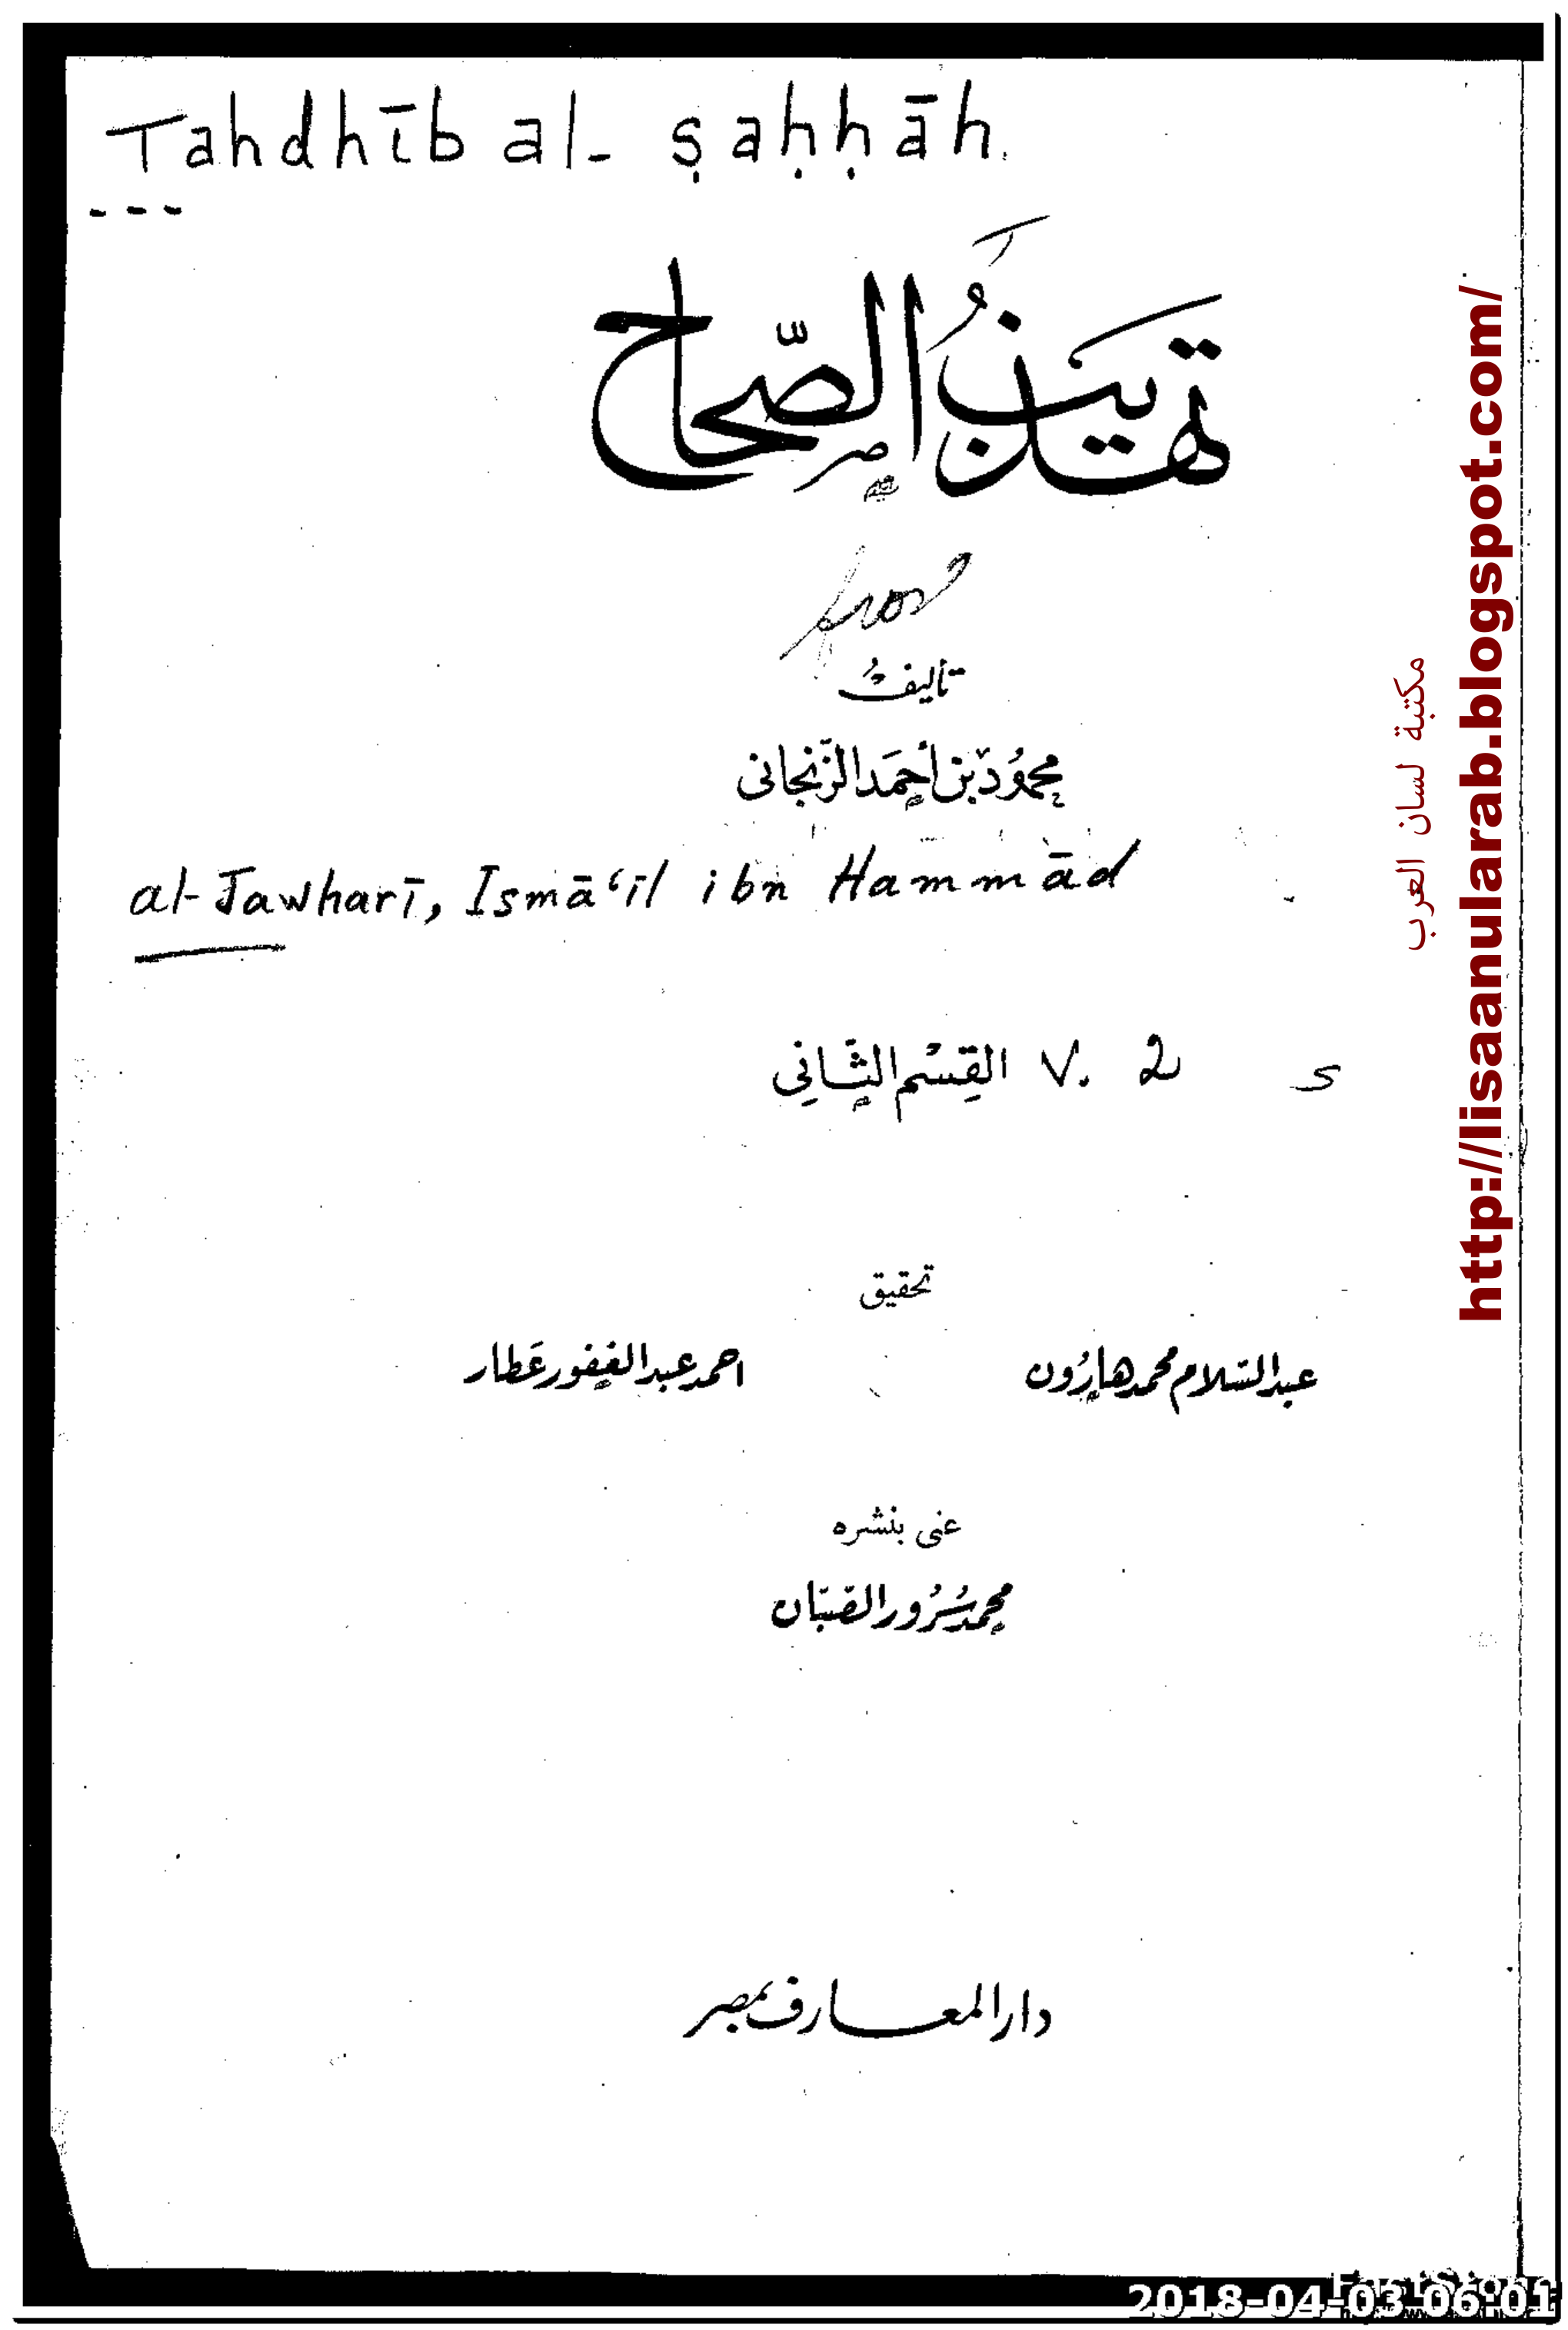 Tahdhīb al- ṣaḥḥāh
تهذيبُ الصّحاح
تأليفُ
محمُود بن أحمَد الزّنجانى
al-Jawharī, Ismā‘īl ibn Hammād
القِسْم الثّاني V. 2
تحقيق
عبد السّلام محمد هارُون
احمد عبد الغفور عَطار
عنى بنشره
محمد سُرُور الصّبّان
دار المعارف بمصر
مكتبة لسان العرب
http://lisaanularab.blogspot.com/
2018-04-03 06:01